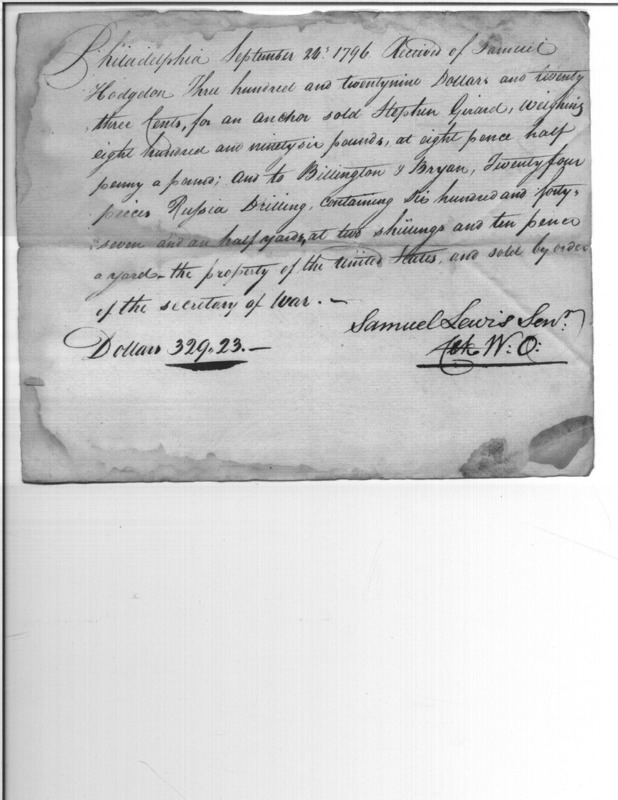 Philadelphia September 24: 1796 Received of Samuel
Hodgdon Three hundred and twentynine Dollars and twenty
three Cents, for an anchor sold Stephen Girard, weighing
eight hundred and ninety six pounds, at eight pence half
penny a pound; and to Billington & Bryan, Twenty four
pieces Russia Drilling, containing Six hundred and forty-
seven and an half yards, at two shillings and ten pence
a yard - the property of the United States, and sold by order
of the secretary of War. -
Samuel Lewis Senr.
Clk W: O:
Dollars 329.23. -